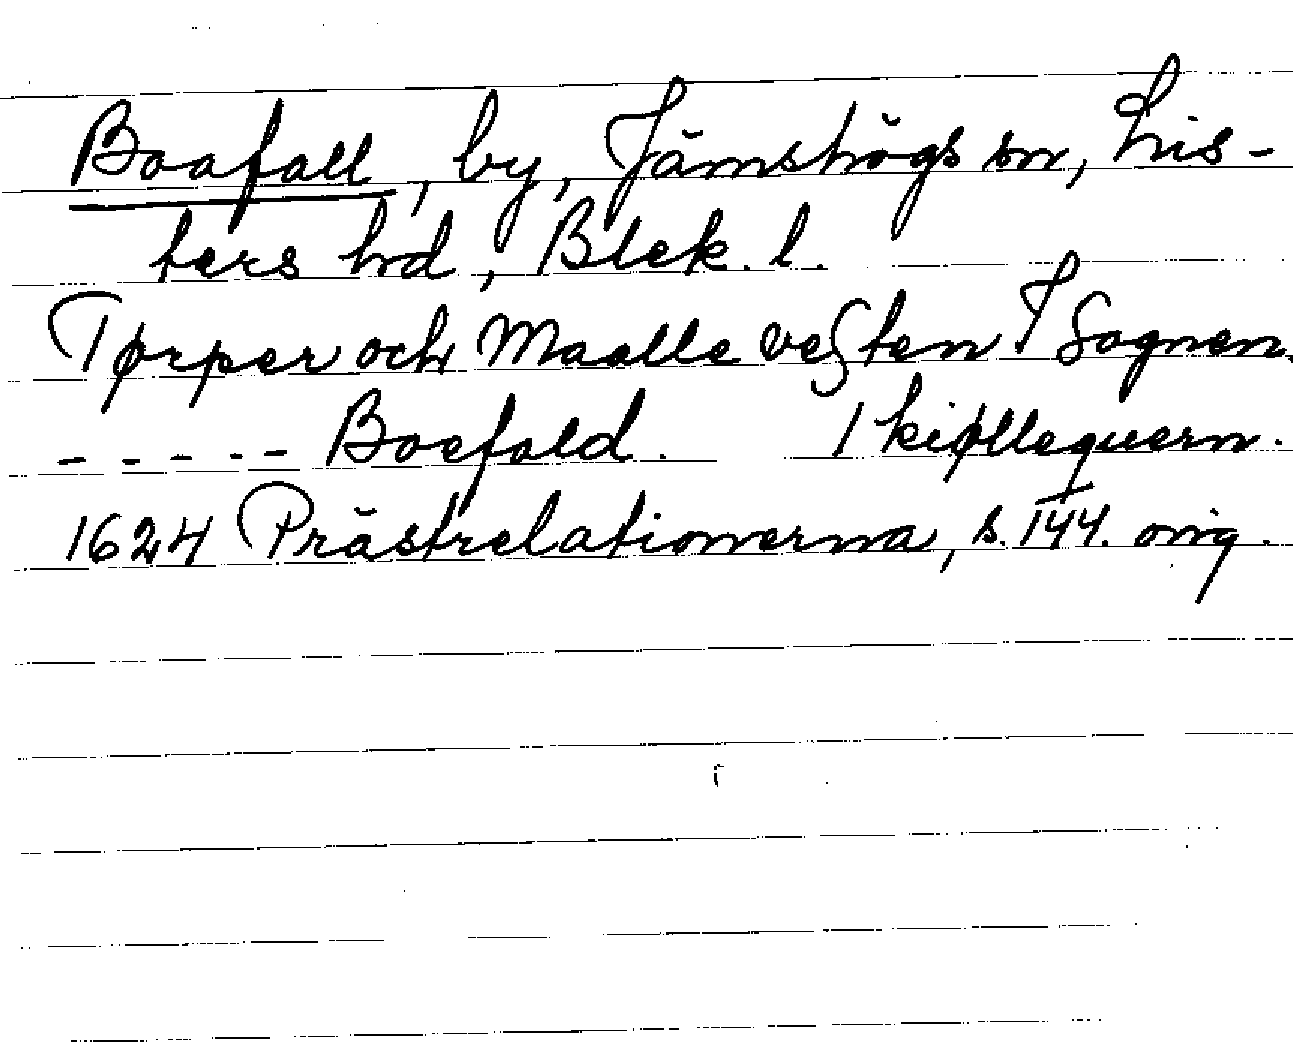 Boafall, by, Jämshögs sn, Lis-
ters hd, Blek. l.
Tørper och Maalle veſten I Sognen.
- - - - - Boefald. 1 kiøllequern.
1624 Prästrelationerna, s. 144. orig.